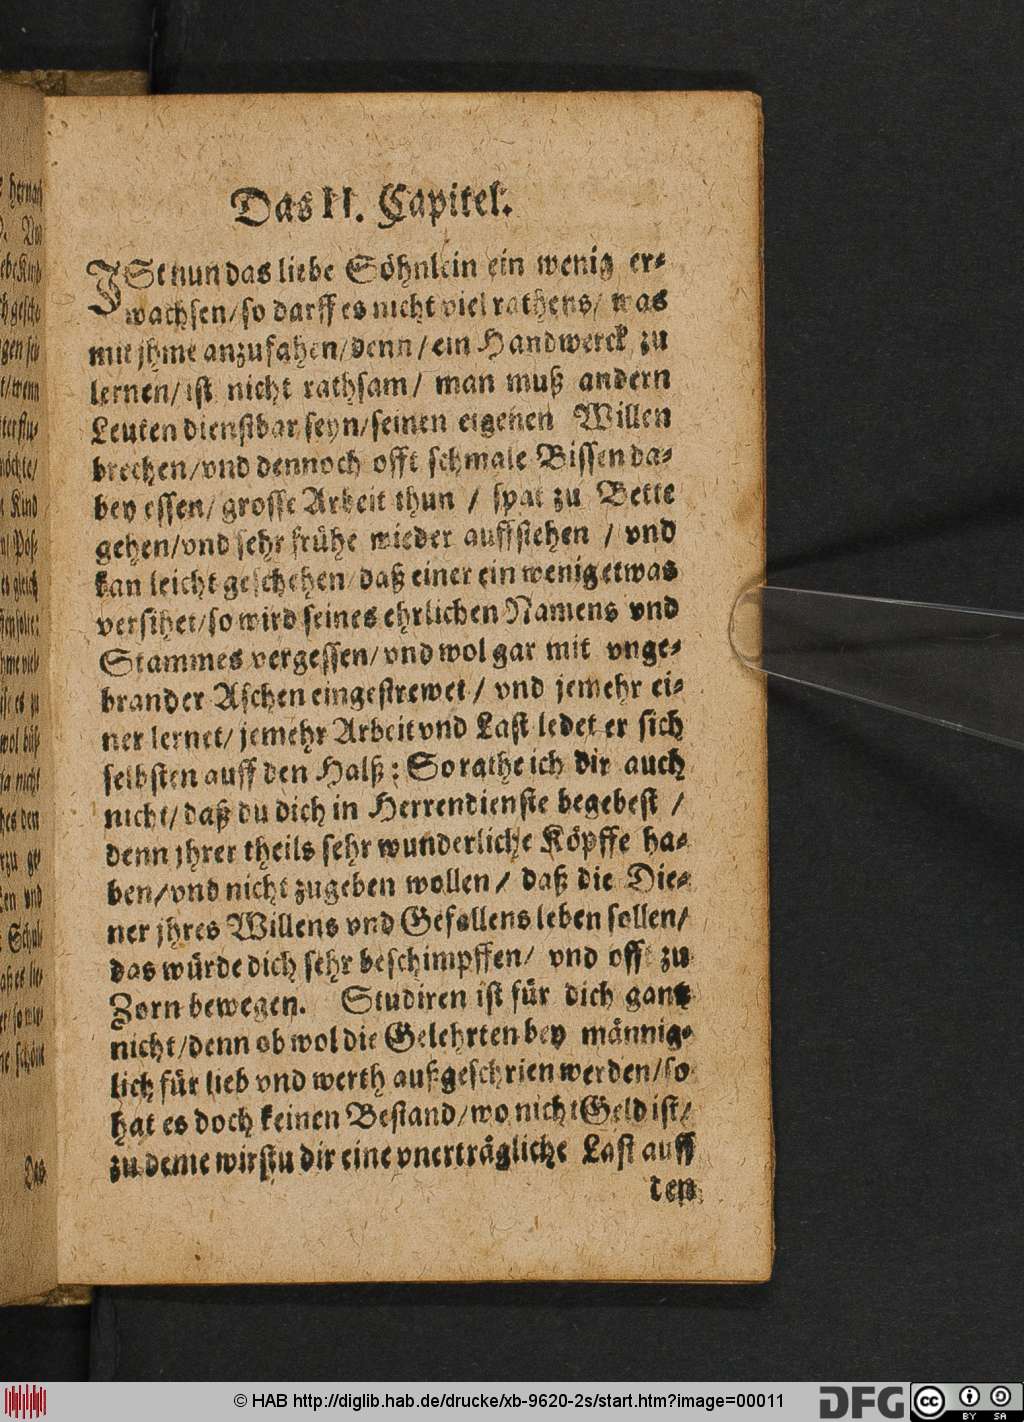 Das II. Capitel.
ISt nun das liebe Söhnlein ein wenig er-
wachsen/ so darff es nicht viel rathens/ was
mit jhme anzufahen/ denn/ ein Handwerck zu
lernen/ ist nicht rathsam/ man muß andern
Leuten dienstbar seyn/ seinen eigenen Willen
brechen/ vnd dennoch offt schmale Bissen da-
bey essen/ grosse Arbeit thun / spat zu Bette
gehen/ vnd sehr frühe wieder auffstehen / vnd
kan leicht geschehen/ daß einer ein wenig etwas
versihet/ so wird seines ehrlichen Namens vnd
Stammes vergessen/ vnd wol gar mit vnge-
brander Aschen eingestrewet / vnd jemehr ei-
ner lernet/ jemehr Arbeit vnd Last ledet er sich
selbsten auff den Halß: So rathe ich dir auch
nicht/ daß du dich in Herrendienste begebest /
denn jhrer theils sehr wunderliche Köpffe ha-
ben/ vnd nicht zugeben wollen/ daß die Die-
ner jhres Willens vnd Gefallens leben sollen/
das würde dich sehr beschimpffen/ vnd offt zu
Zorn bewegen. Studiren ist für dich gantz
nicht/ denn ob wol die Gelehrten bey männig-
lich für lieb vnd werth außgeschrien werden/ so
hat es doch keinen Bestand/ wo nicht Geld ist/
zu deme wirstu dir eine vnerträgliche Last auff
den
© HAB http://diglib.hab.de/drucke/xb-9620-2s/start.htm?image=00011
DFG
cc
BY SA